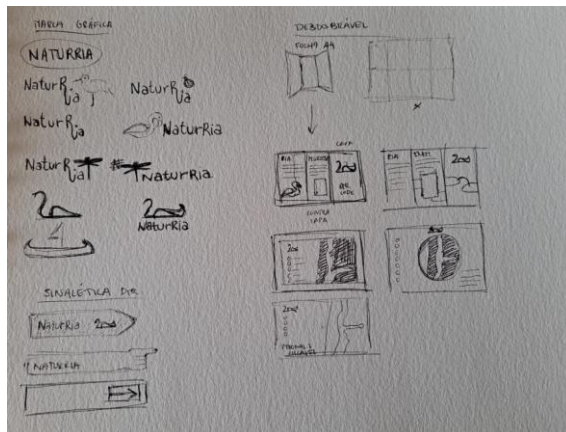 MARCA GRÁFICA
NATURRIA
NaturRia
NaturRia
NaturRia
NaturRia
NaturRia
NaturRia
NaturRia
SINALÉTICA DIR
NaturRia
NATURRIA
DESDOBRÁVEL
A4
CAPA
RIA
QR
CODE
RIA
CONTRA
CAPA